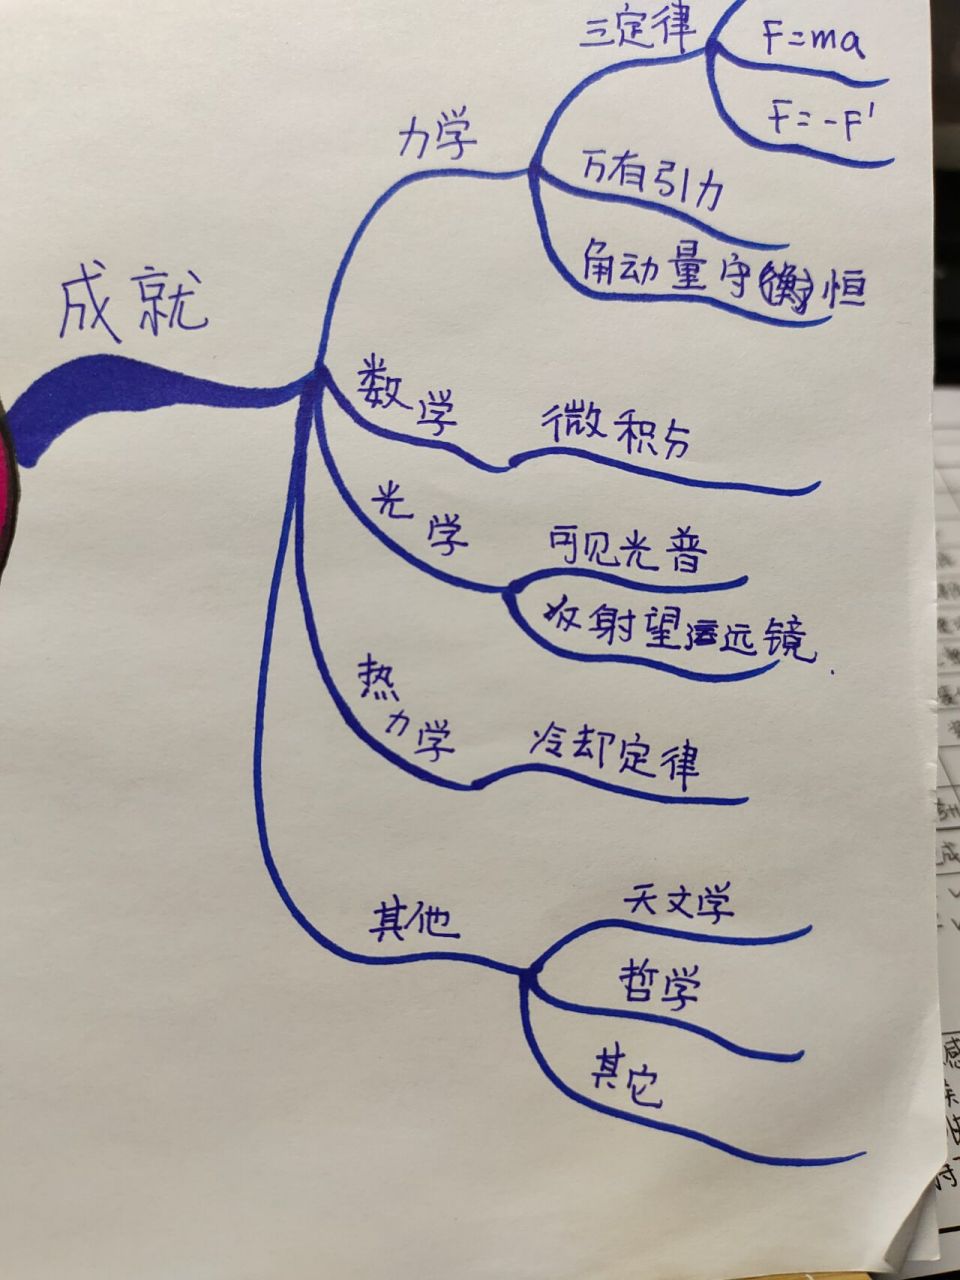 三定律
F=ma
F=-F'
力学
万有引力
角动量守恒
成就
数学
微积分
光学
可见光普
反射望远镜
热力学
冷却定律
其他
天文学
哲学
其它